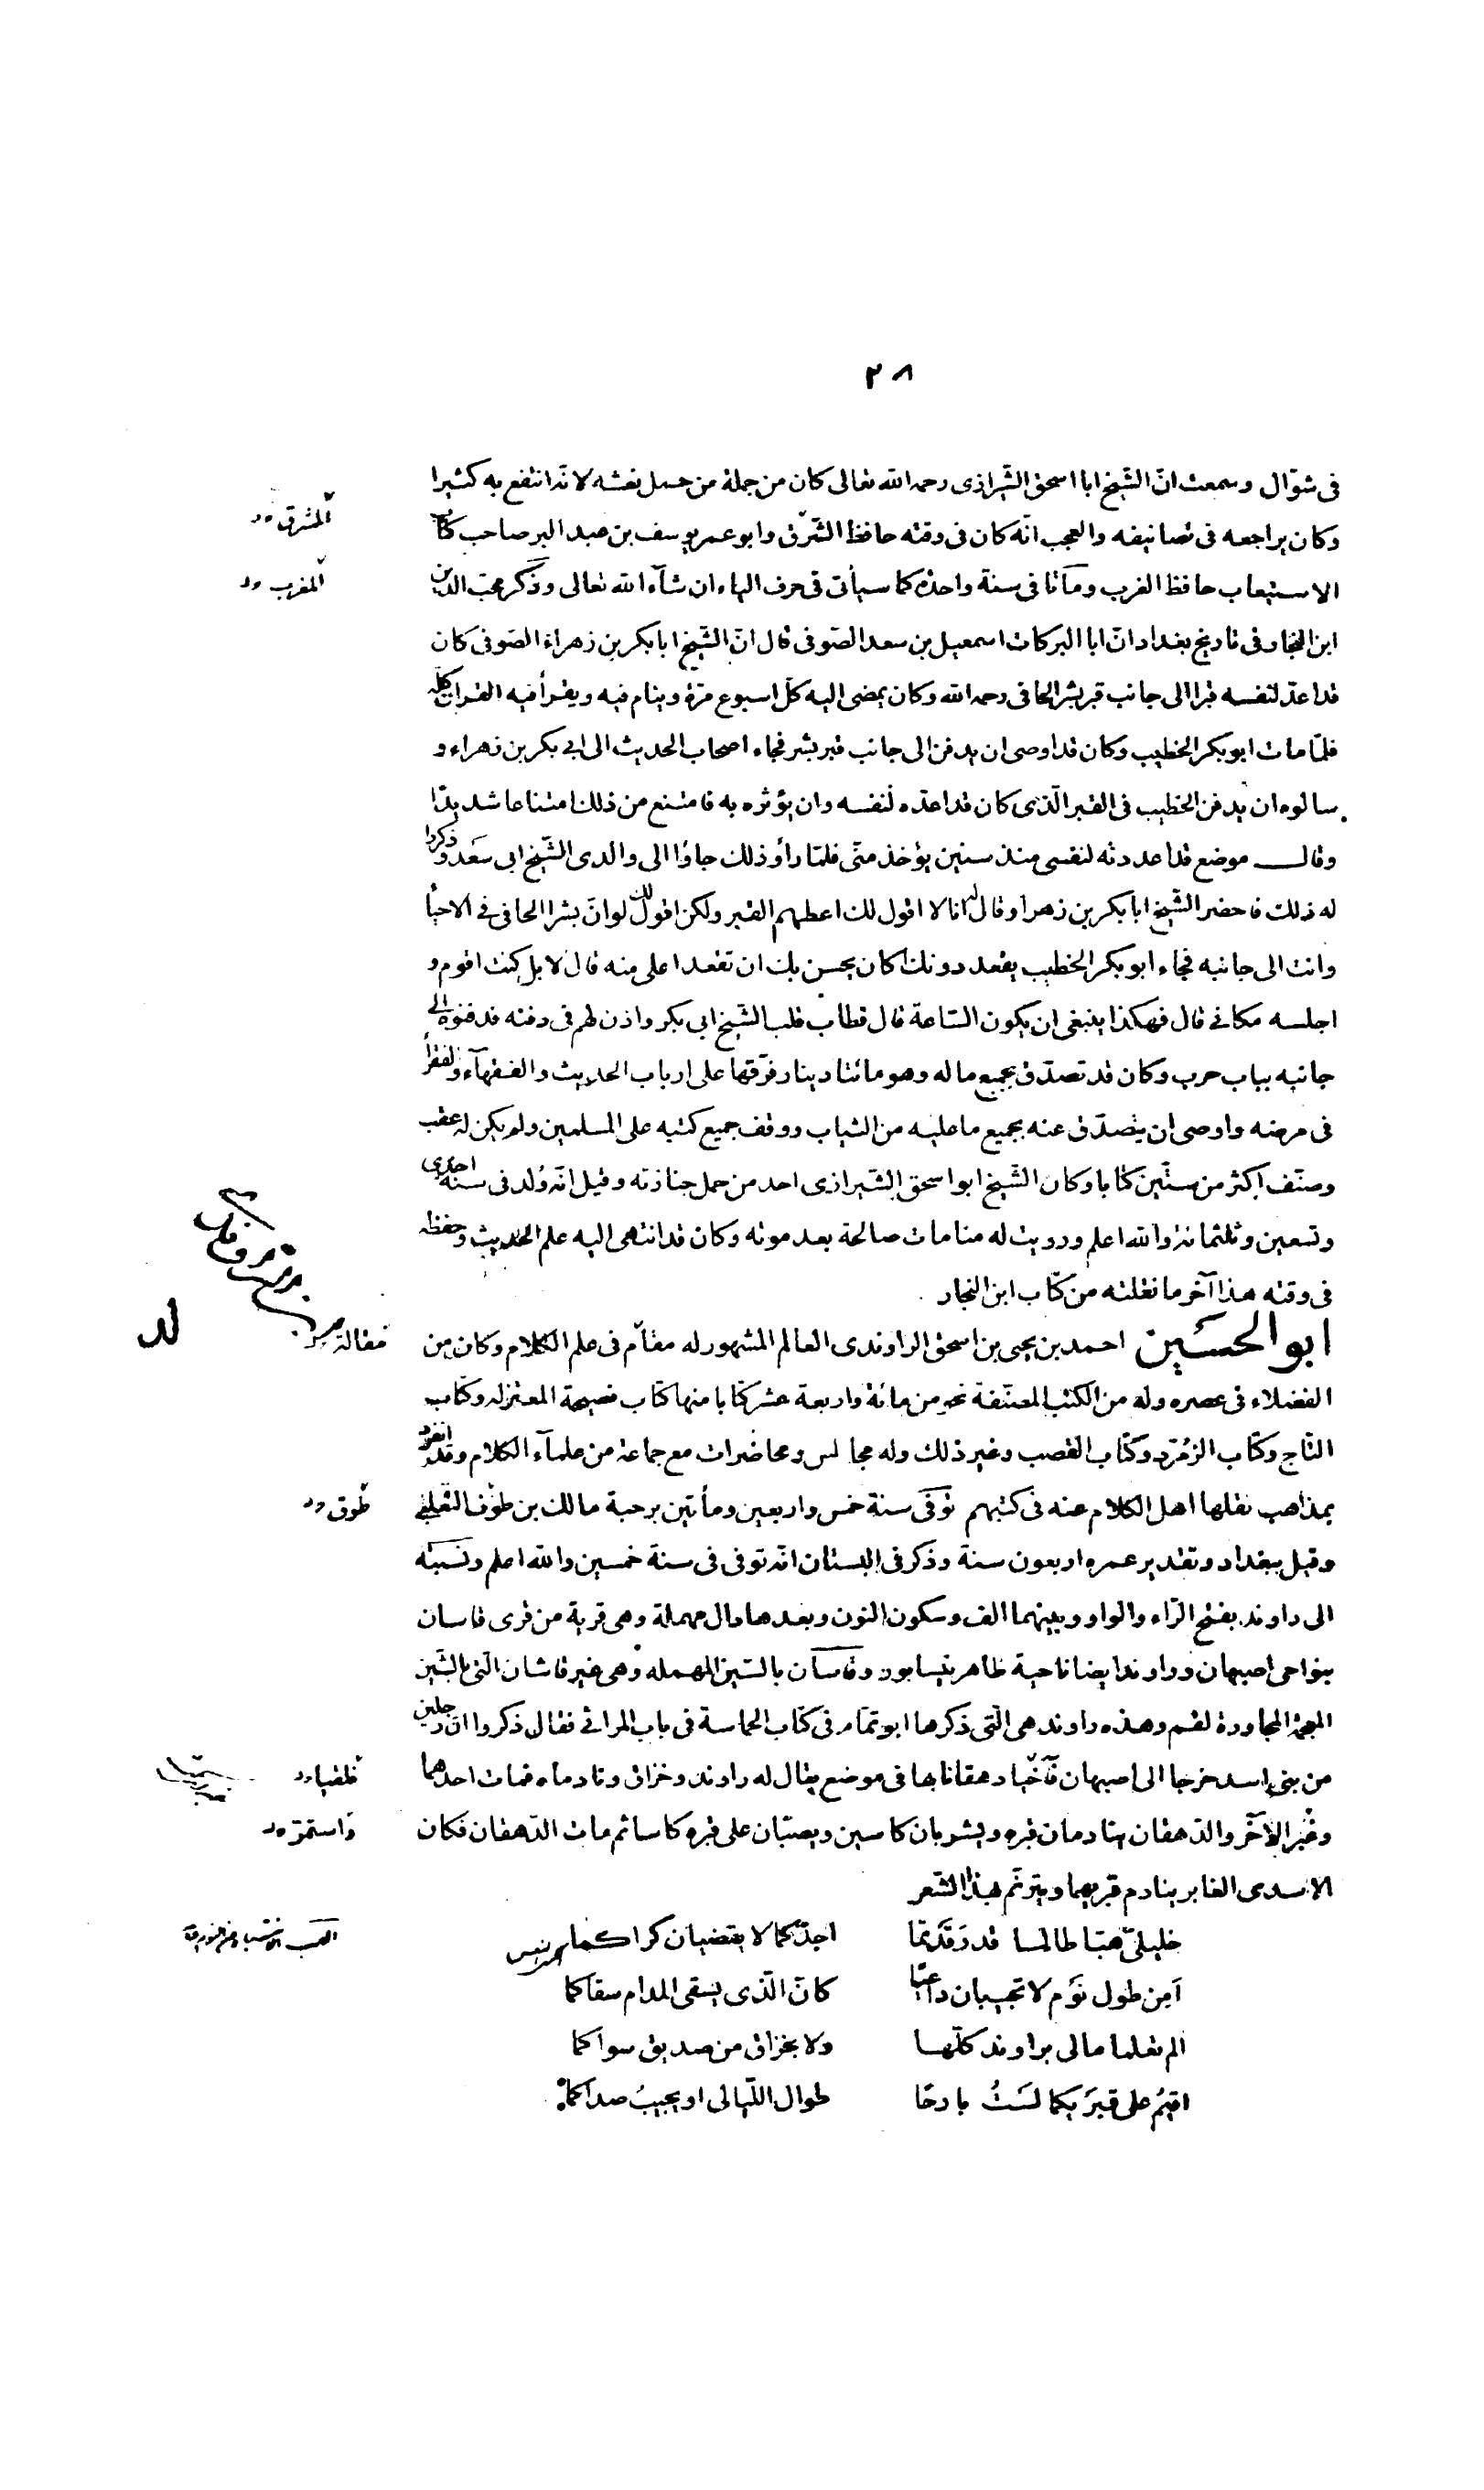 ٢٨
فى شوّال وسمعت انّ الشّيخ ابا اسحق الشّيرازى رحمه الله تعالى كان من جملة من حمل نعشه لانّه انتفع به كثيرا
المشرق
وكان يراجعه فى تصانيفه والعجب انّه كان فى وقته حافظ الشّرق وابو عمر يوسف بن عبد البر صاحب كتاب
المغرب
الاستيعاب حافظ الغرب وماتا فى سنة واحدة كما سيأتى فى حرف الياء ان شآء الله تعالى وذكر محبّ الدين
ابن النجّار فى تاريخ بغداد انّ ابا البركات اسمعيل بن سعد الصّوفى قال انّ الشّيخ ابا بكر بن زهراء الصّوفى كان
قد اعدّ لنفسه قبرا الى جانب قبر بشر الحافى رحمه الله وكان يمضى اليه كلّ اسبوع مرّة وينام فيه ويقرأ فيه القران كله
فلمّا مات ابو بكر الخطيب وكان قد اوصى ان يدفن الى جانب قبر بشر فجاء اصحاب الحديث الى ابى بكر بن زهراء و
سالوه ان يدفن الخطيب فى القبر الّذى كان قد اعدّه لنفسه وان يؤثره به فامتنع من ذلك امتناعا شديدا
وقال موضع قد اعددته لنفسى منذ سنين يؤخذ منّى فلمّا رأو ذلك جاؤا الى والدى الشّيخ ابى سعد وذكروا
له ذلك فاحضر الشّيخ ابا بكر بن زهرا وقال له انا لا اقول لك اعطهم القبر ولكن اقول لك لو انّ بشرا الحافى فى الاحيأ
وانت الى جانبه فجاء ابو بكر الخطيب يقعد دونك اكان يحسن بك ان تقعد اعلى منه قال لا بل كنت اقوم و
اجلسه مكانى قال فهكذا ينبغى ان يكون السّاعة قال فطاب قلب الشّيخ ابى بكر واذن لهم فى دفنه فدفنوه الى
جانبه بباب حرب وكان قد تصدّق بجميع ماله وهو مائتا دينار فرّقها على ارباب الحديث والفقهآء والفقرأ
فى مرضه واوصى ان يتصدّق عنه بجميع ما عليه من الثياب ووقف جميع كتبه على المسلمين ولم يكن له عقب
وصنّف اكثر من ستّين كتابا وكان الشّيخ ابو اسحق الشّيرازى احد من حمل جنازته وقيل انّه وُلد فى سنة احدى
وتسعين وثلثمائة والله اعلم ورويت له منامات صالحة بعد موته وكان قد انتهى اليه علم الحديث وحفظه
فى وقته هذا آخر ما نقلته من كتاب ابن النجار
ابو الحسين احمد بن يحيى بن اسحق الراوندى العالم المشهور له مقام فى علم الكلام وكان من
مقالة
لد
الفضلاء فى عصره وله من الكتب المصنّفة نحو من مائة واربعة عشر كتابا منها كتاب فضيحة المعتزله وكتاب
التّاج وكتاب الزمُرّد وكتاب القصب وغير ذلك وله مجالس ومحاضرات مع جماعة من علمآء الكلام وقد انفرد
بمذاهب نقلها اهل الكلام عنه فى كتبهم توفّى سنة خمس واربعين ومأتين برحبة مالك بن طوف التغلبى
طوق
وقيل ببغداد وتقدير عمره اربعون سنة وذكر فى البستان انّه توفى فى سنة خمسين والله اعلم ونسبته
الى راوند بفتح الرّاء والواو وبينهما الف وسكون النون وبعدها دال مهملة وهى قرية من قرى قاسان
بنواحى اصبهان وراوند ايضا ناحية ظاهر نيسابور وقاسان بالسّين المهمله وهى غير قاشان الّتى بالشّين
المعجمة المجاورة لقم وهذه راوند هى الّتى ذكرها ابو تمّام فى كتاب الحماسة فى باب المراثى فقال ذكروا انّ رجلين
من بنى اسد خرجا الى اصبهان فآخيا دهقانا بها فى موضع يقال له راوند وخزاق ونادماه فمات احدهما
وغبر الآخر والدّهقان ينادمان قبره ويشربان كاسين ويصبّان على قبره كاسا ثم مات الدّهقان فكان
واستمرّ
الاسدى الغابر ينادم قبريهما ويترنّم بهذا الشعر
خليلىّ هبّا طالما قد رَقَدتما    اجدّكما لا يقضيان كراكما
اَمِن طول نَوم لا تجيبان داعيًا    كانّ الّذى يسقى المدام سقاكما
الم تعلما مالى براوند كلّها    ولا بخزاق من صديق سواكما
اقيمُ على قبرَيكما لَستُ بارحًا    طوال اللّيالى او يجيبُ صداكما